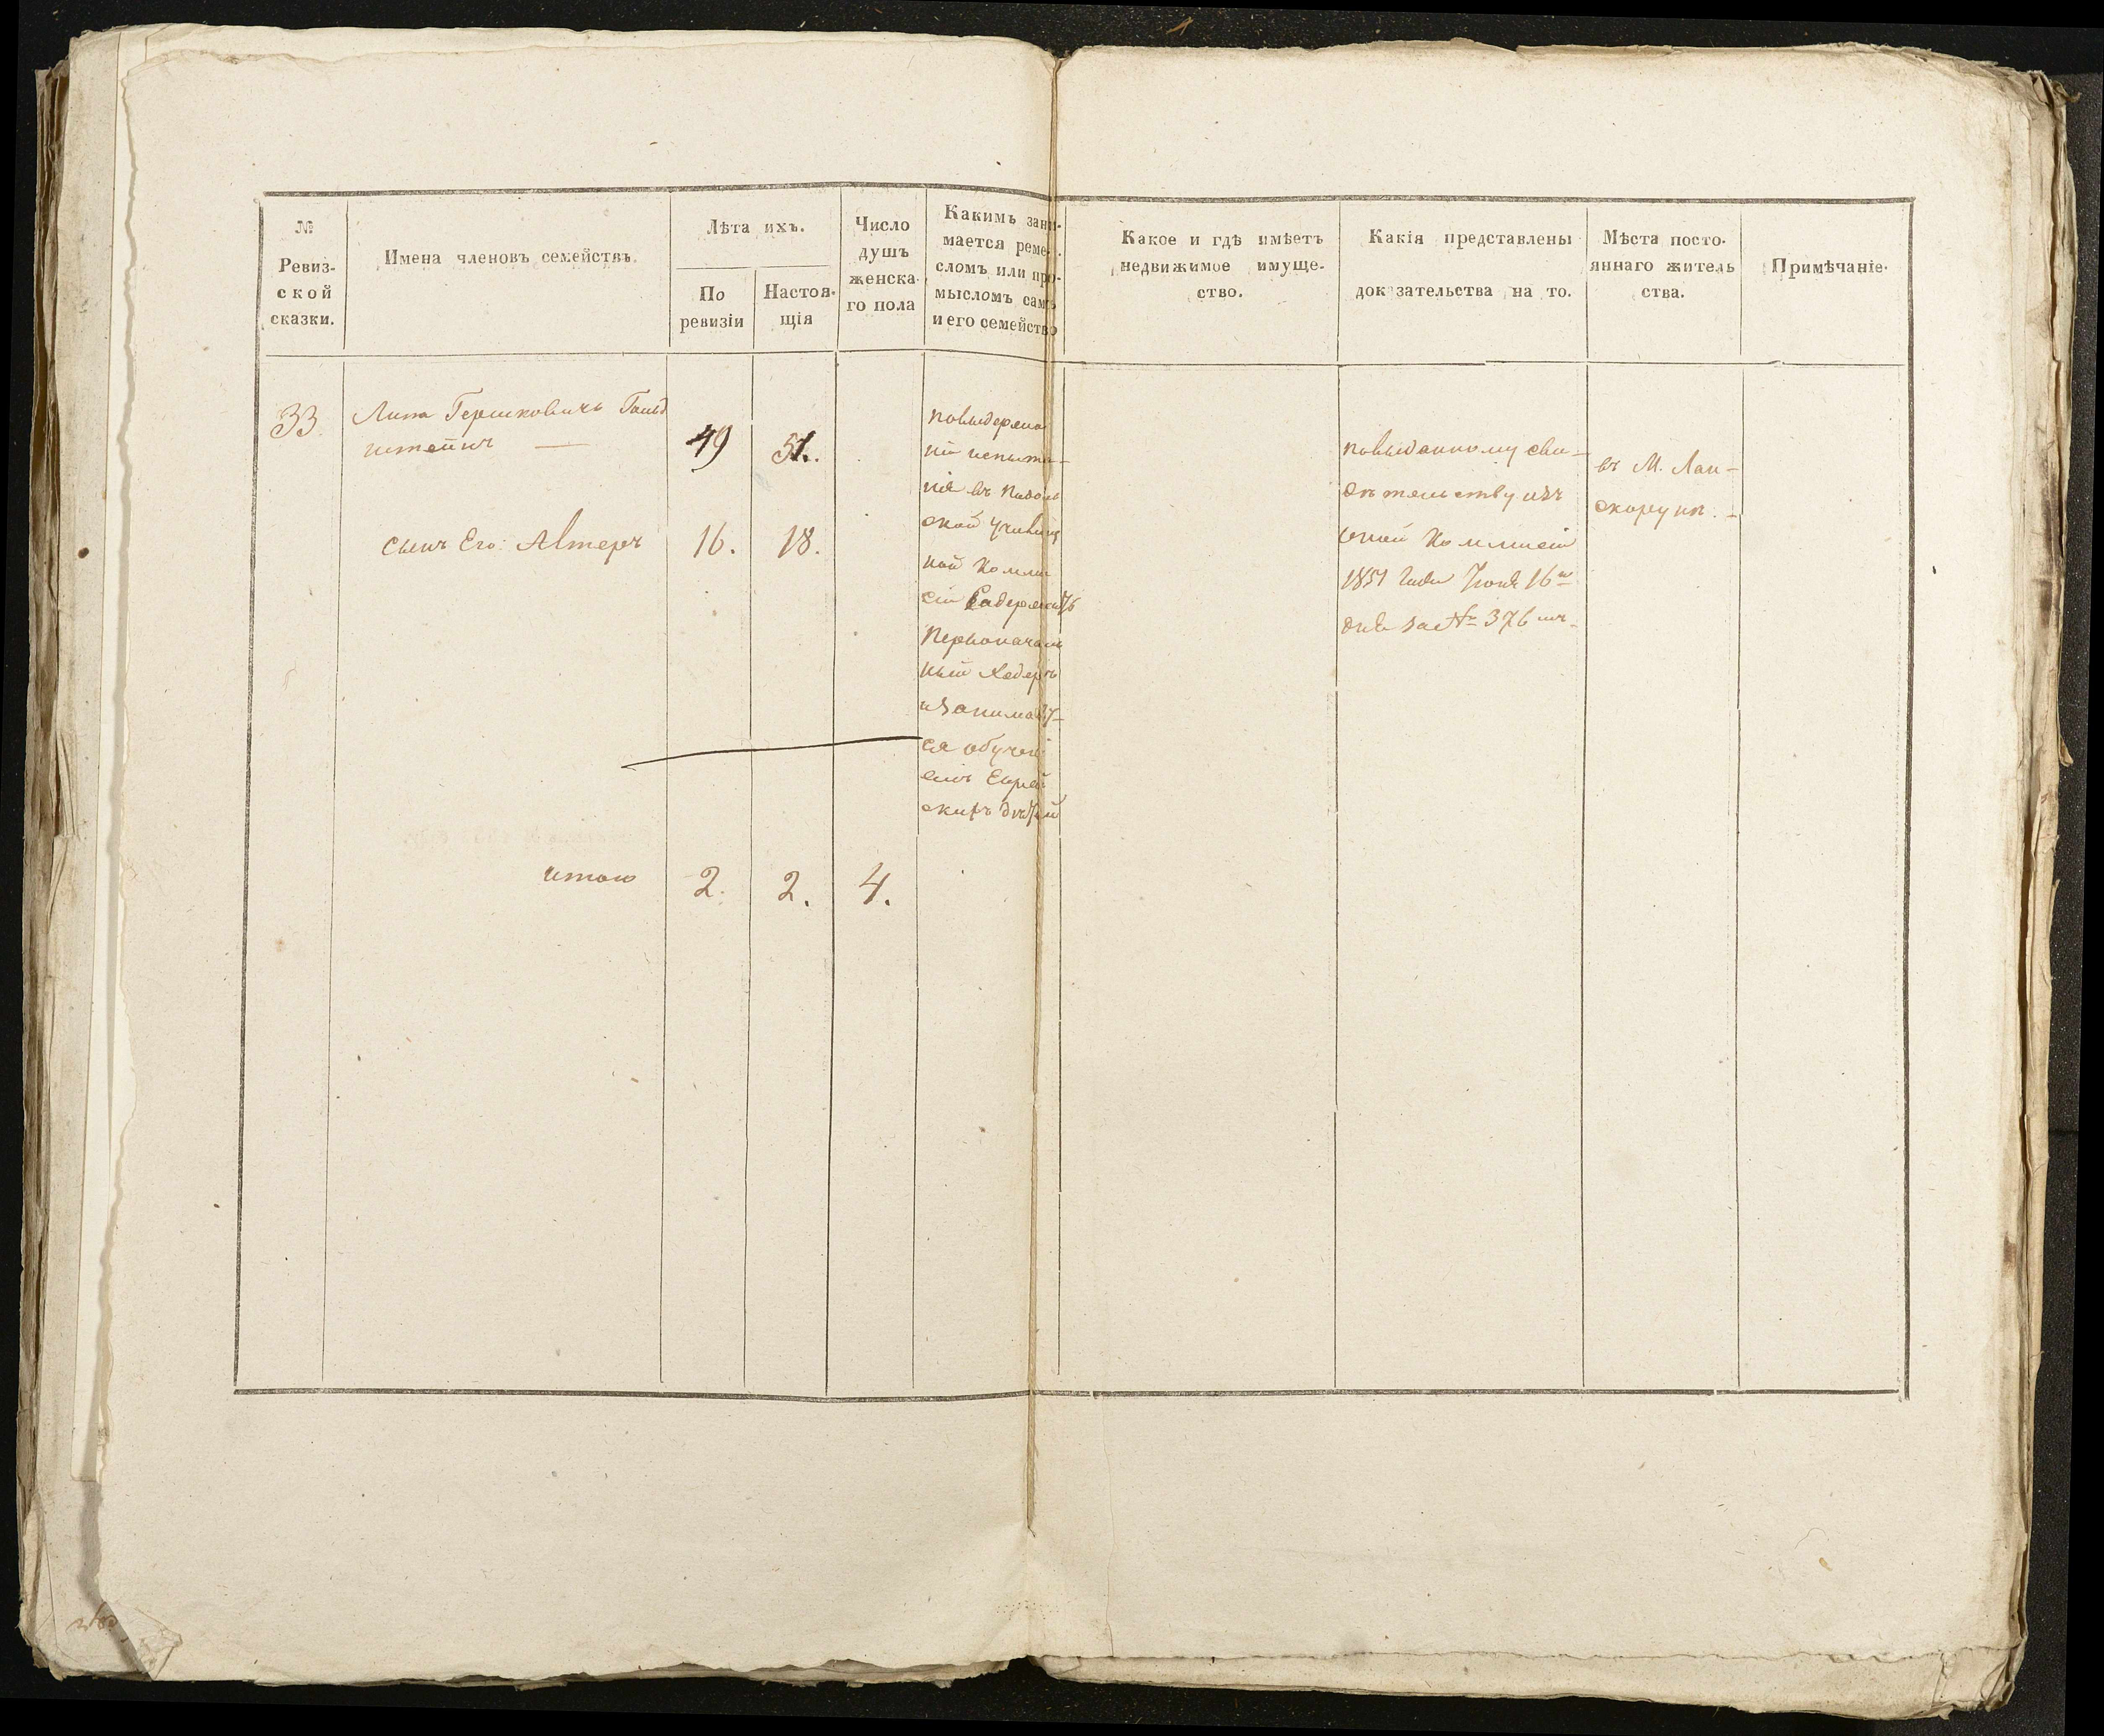 №
Ревиз-
ской
сказки.
Имена членовъ семействъ.
Лѣта ихъ.
По
ревизіи
Настоя-
щія
Число
душъ
женска-
го пола
Какимъ зани-
мается реме-
сломъ или про-
мысломъ самъ
и его семейство
Какое и гдѣ имѣетъ
недвижимое имуще-
ство.
Какія представлены
доказательства на то.
Мѣста посто-
яннаго житель
ства.
Примѣчаніе.
33.
Липа Гершковичъ Гольд
штейнъ
49
51.
сынъ Его: Алтеръ
16.
18.
повыдержа
ніи испыта-
нія въ Подоль
ской
ной Комми
сіи Содержитъ
Первоначаль
ный Хедеръ
изанимает-
ся обучені
емъ Еврей
скихъ дѣтей
повыданному сви-
дѣтельству изъ
оной Коммисіи
1851 Года Іюня 16го
дня за № 376
въ М. Лян-
скорунѣ. -
итого
2.
2.
4.